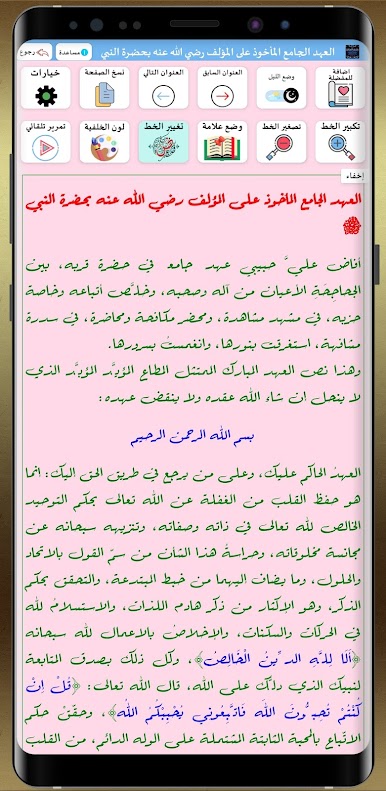 العهد الجامع المأخوذ على المؤلف رضي الله عنه بحضرة النبي
مساعدة
رجوع
اضافة للمفضلة
وضع الليل
العنوان السابق
العنوان التالي
نسخ الصفحة
خيارات
تكبير الخط
تصغير الخط
وضع علامة
تغيير الخط
لون الخلفية
تمرير تلقائي
إخفاء
العهد الجامع المأخوذ على المؤلف رضي الله عنه بحضرة النبي
ﷺ
أفاض عليَّ حبيبي عهد جامع في حضرة قربه، بين
الجحاجحة الأعيان من آله وصحبه، وخلَّص أتباعه وخاصة
حزبه، في مشهد مشاهدة، ومحضر مكافحة ومحاضرة، في سدرة
مشافهة، استغرقت بنورها، وانغمست بسرورها.
وهذا نص العهد المبارك الممتثل المطاع المؤيَّد المؤبَّد الذي
لا ينحل ان شاء الله عقده ولا ينقض عهده:
بسم الله الرحمن الرحيم
العهد الحاكم عليك، وعلى من يرجع في طريق الحق اليك: انما
هو حفظ القلب من الغفلة عن الله تعالى بحكم التوحيد
الخالص لله تعالى في ذاته وصفاته، وتنزيهه سبحانه عن
مجانسة مخلوقاته، وحراسة هذا الشان من سمّ القول بالاتحاد
والحلول، وما يضاف اليهما من خبط المبتدعة، والتحقق بحكم
الذكر، وهو الإكثار من ذكر هادم اللذات، والاستسلام لله
في الحركات والسكنات، والإخلاص بالاعمال لله سبحانه
﴿أَلَا لِلَّهِ الدِّينُ الْخَالِصُ﴾، وكل ذلك بصدق المتابعة
لنبيك الذي دلّك على الله، قال الله تعالى: ﴿قُلْ إِنْ
كُنْتُمْ تُحِبُّونَ اللَّهَ فَاتَّبِعُونِي يُحْبِبْكُمُ اللَّهُ﴾، وحقّق حكم
الاتّباع بالمحبة الثابتة المشتملة على الوله الدائم، من القلب